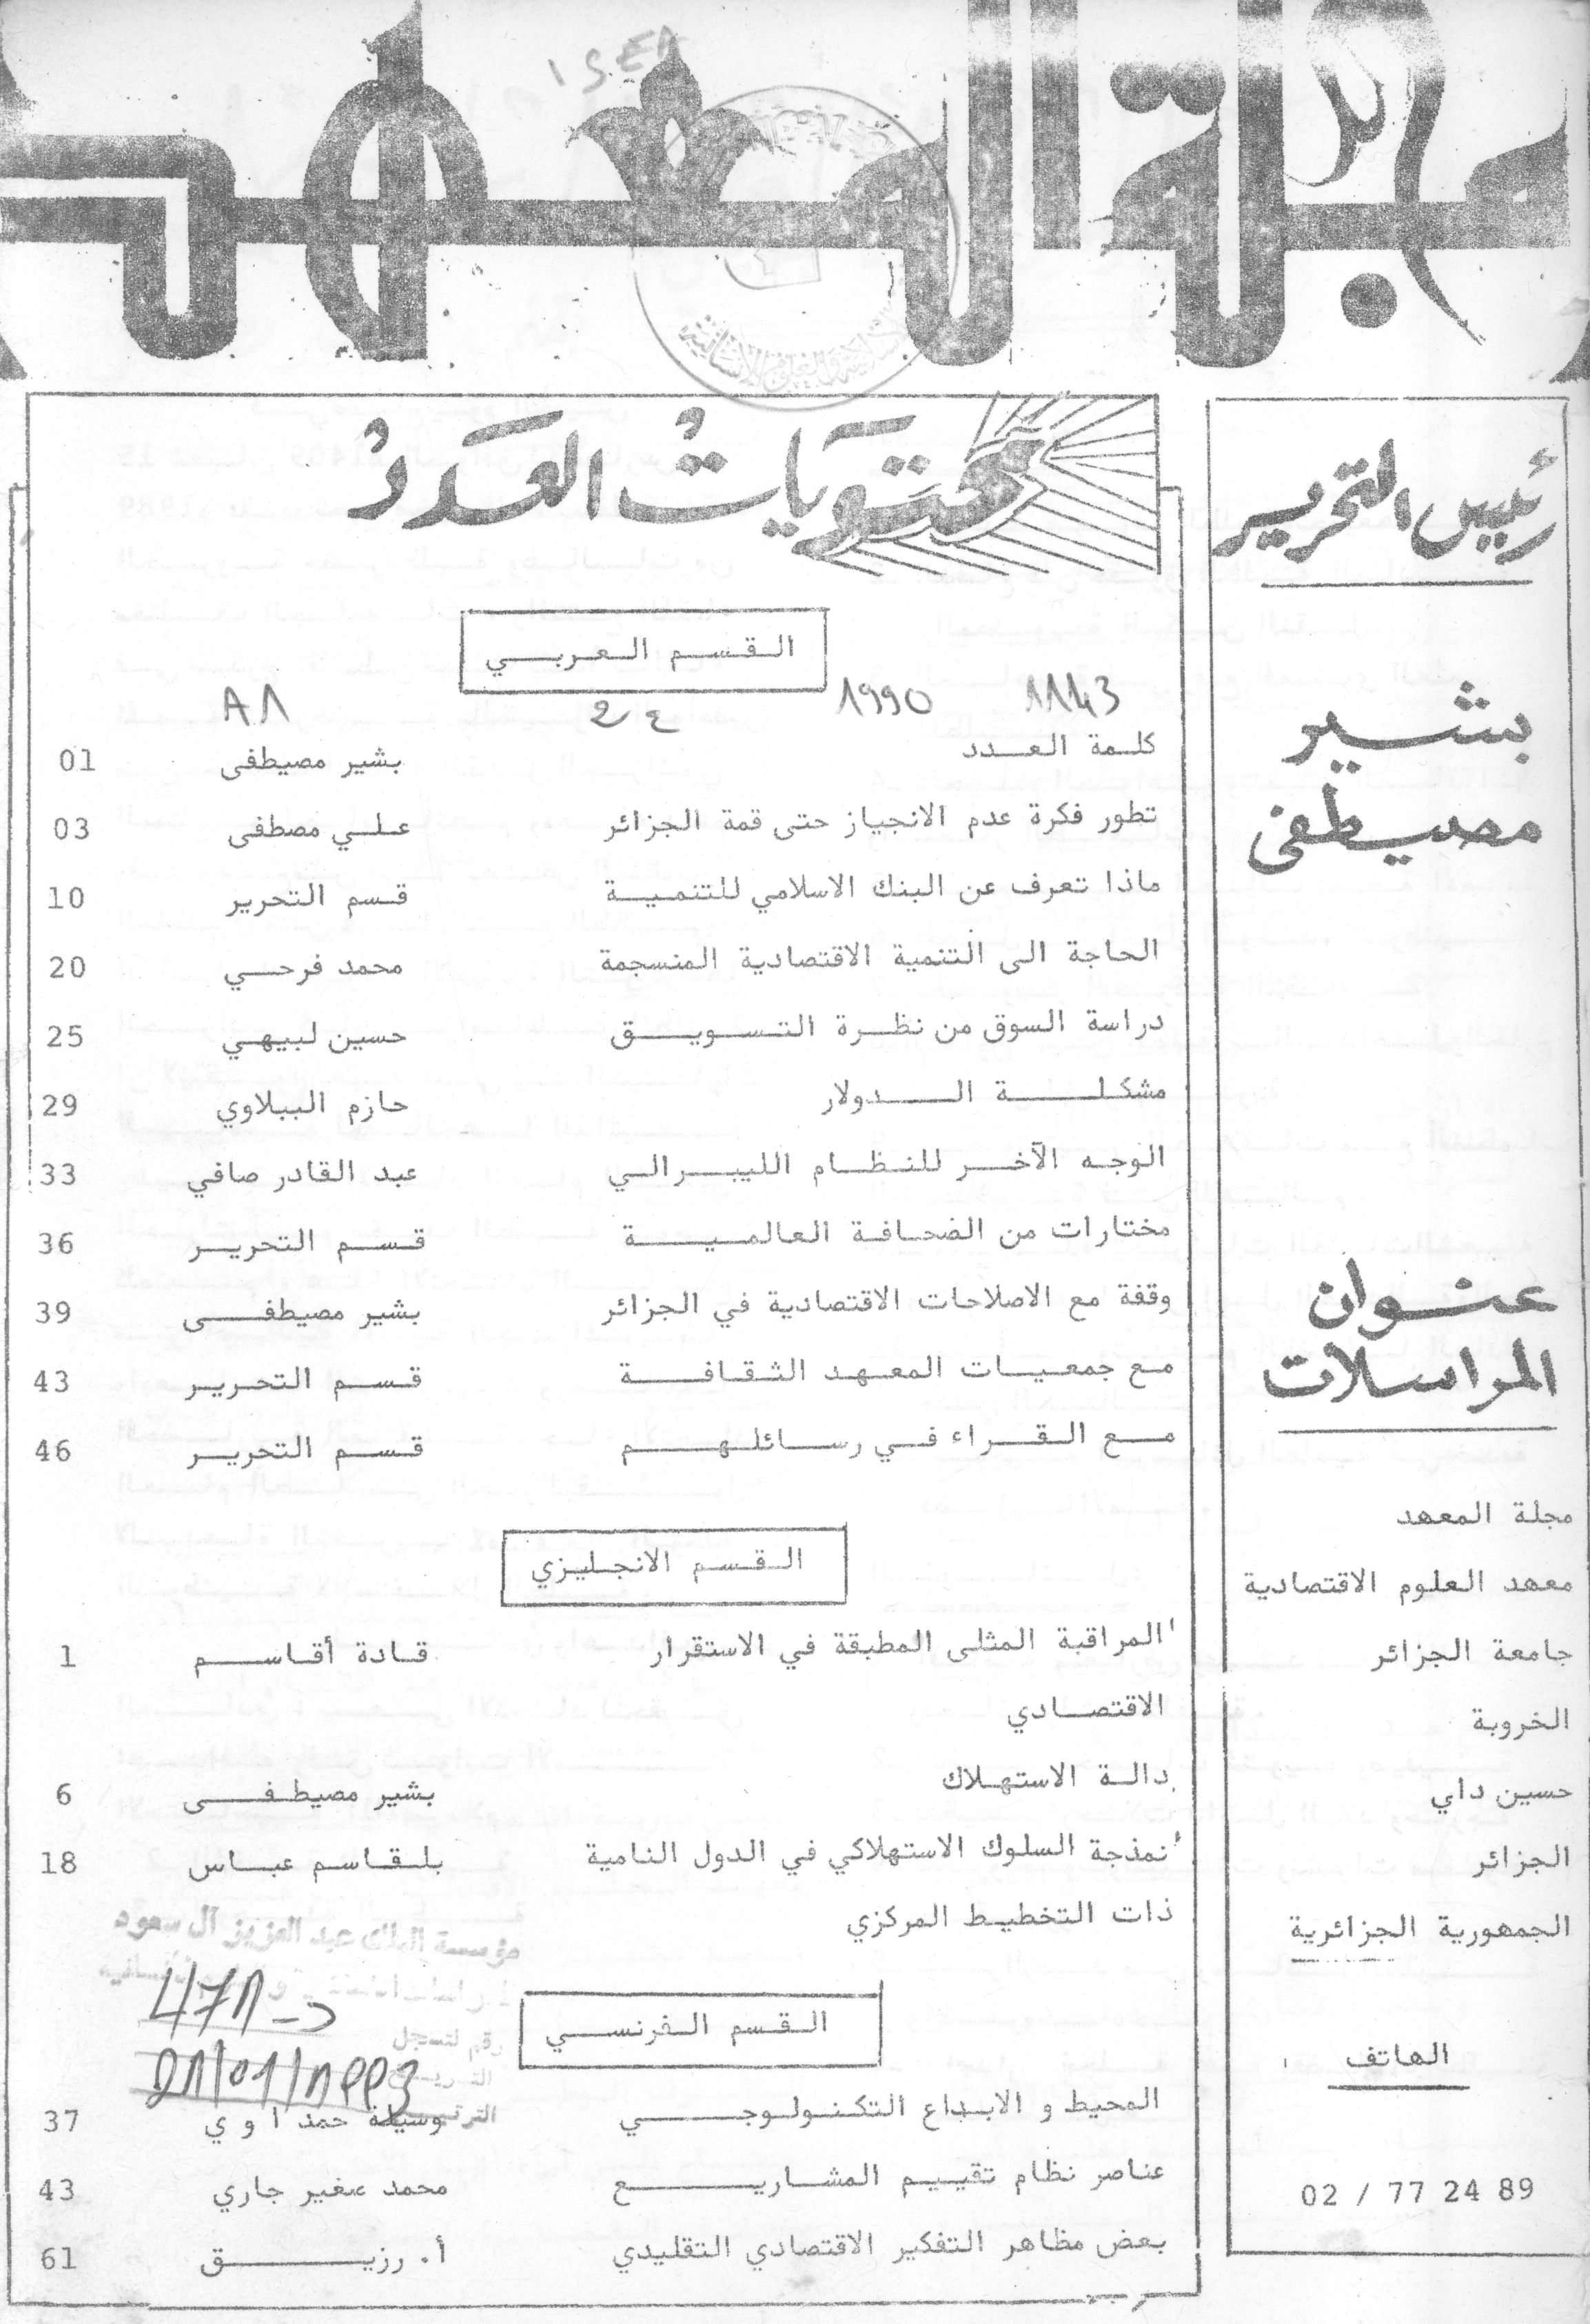 مجلة المعهد
ISEA
رئيس التحرير
بشير
مصيطفى
عنوان
المراسلات
مجلة المعهد
معهد العلوم الاقتصادية
جامعة الجزائر
الخروبة
حسين داي
الجزائر
الجمهورية الجزائرية
الهاتف
02 / 77 24 89
محتويات العدد
القسم العربي
1143 1990 ع2 A1
كلمة العدد بشير مصيطفى 01
تطور فكرة عدم الانجياز حتى قمة الجزائر علي مصطفى 03
ماذا تعرف عن البنك الاسلامي للتنمية قسم التحرير 10
الحاجة الى التنمية الاقتصادية المنسجمة محمد فرحي 20
دراسة السوق من نظرة التسويق حسين لبيهي 25
مشكلة الدولار حازم الببلاوي 29
الوجه الآخر للنظام الليبرالي عبد القادر صافي 33
مختارات من الضحافة العالمية قسم التحرير 36
وقفة مع الاصلاحات الاقتصادية في الجزائر بشير مصيطفى 39
مع جمعيات المعهد الثقافة قسم التحرير 43
مع القراء في رسائلهم قسم التحرير 46
القسم الانجليزي
المراقبة المثلى المطبقة في الاستقرار قادة أقاسم 1
الاقتصادي
دالة الاستهلاك بشير مصيطفى 6
نمذجة السلوك الاستهلاكي في الدول النامية بلقاسم عباس 18
ذات التخطيط المركزي
القسم الفرنسي
المحيط و الابداع التكنولوجي وسيلة حمداوي 37
عناصر نظام تقييم المشاريع محمد صغير جاري 43
بعض مظاهر التفكير الاقتصادي التقليدي أ. رزيق 61